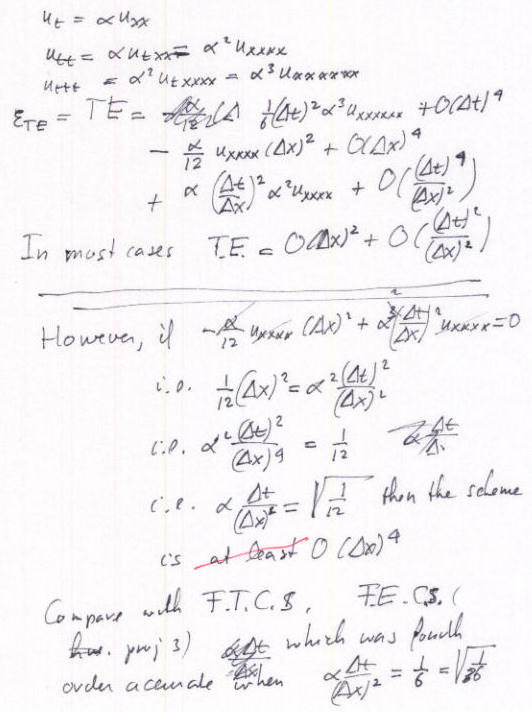 u_t = α u_xx
u_tt = α u_txx = α² u_xxxx
u_ttt = α² u_txxxx = α³ u_xxxxxx
ε_TE = TE = 1/6 (Δt)² α³ u_xxxxxx + O(Δt)⁴
− α/12 u_xxxx (Δx)² + O(Δx)⁴
+ α (Δt/Δx)² α² u_xxxx + O((Δt)⁴/(Δx)²)
In most cases T.E. = O(Δx)² + O((Δt)²/(Δx)²)
However, if −α/12 u_xxxx (Δx)² + α³ (Δt/Δx)² u_xxxx = 0
i.e. 1/12 (Δx)² = α² (Δt)²/(Δx)²
i.e. α² (Δt)²/(Δx)⁴ = 1/12
i.e. α Δt/(Δx)² = √(1/12) then the scheme
is at least O(Δx)⁴
Compare with F.T.C.S., F.E.C.S. (
proj 3) which was fourth
order accurate when α Δt/(Δx)² = 1/6 = √(1/36)